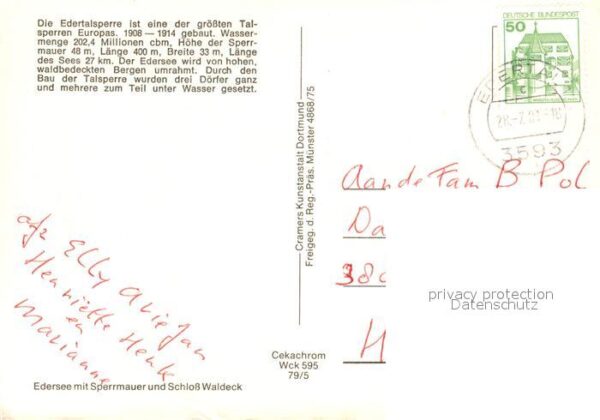 Die Edertalsperre ist eine der größten Tal-
sperren Europas. 1908 — 1914 gebaut. Wasser-
menge 202,4 Millionen cbm, Höhe der Sperr-
mauer 48 m, Länge 400 m, Breite 33 m, Länge
des Sees 27 km. Der Edersee wird von hohen,
waldbedeckten Bergen umrahmt. Durch den
Bau der Talsperre wurden drei Dörfer ganz
und mehrere zum Teil unter Wasser gesetzt.
afz Elly Arie Jan
Henriëtte Henk
en
Marianne
Edersee mit Sperrmauer und Schloß Waldeck
Cramers Kunstanstalt Dortmund
Freigeg. d. Reg.-Präs. Münster 4868/75
Cekachrom
Wck 595
79/5
DEUTSCHE BUNDESPOST
50
EDERTAL
c
3593
Aan de Fam B Pol
Da
38
H
privacy protection
Datenschutz